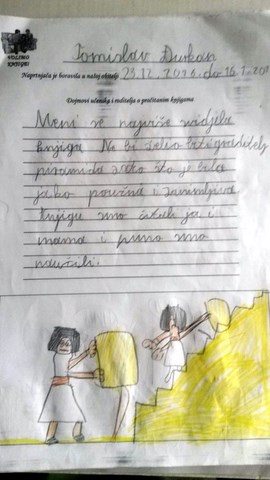 VOLIMO
KNJIGU
Tomislav Đukan
Naprtnjača je boravila u našoj obitelji 23.12.2016. do 16.1.201
Dojmovi učenika i roditelja o pročitanim knjigama
Meni se najviše svidjela
knjiga Ne bi želio biti graditelj
piramida zato što je bila
jako poučna i zanimljiva
Knjigu smo čitali ja i
mama i puno smo
naučili.